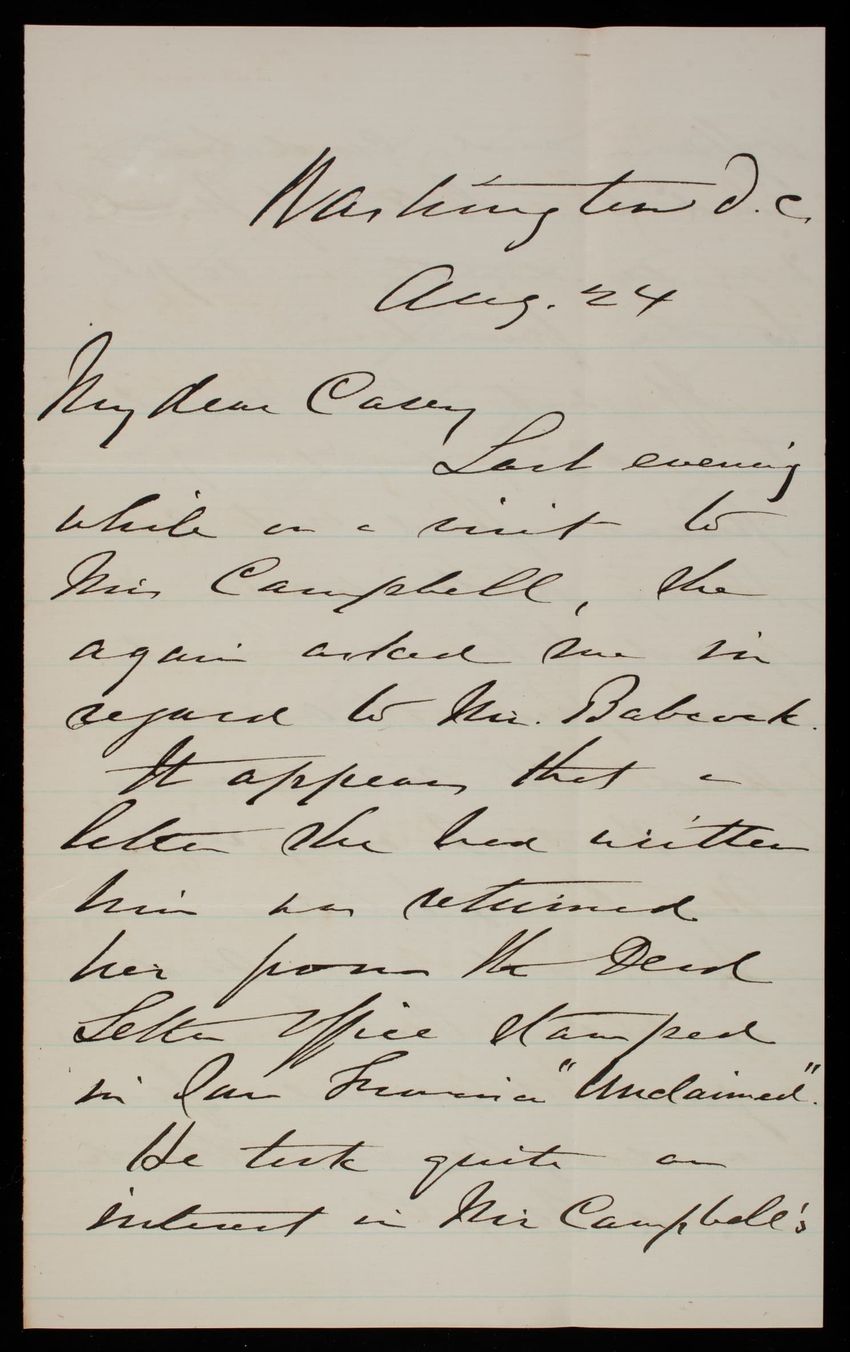 Washington D.C.
Aug. 24
My dear Casey
Last evening
while on a visit to
Mrs Campbell, she
again asked me in
regard to Mr. Babcock.
It appears that a
letter she had written
him was returned
her from the Dead
Letter Office stamped
in San Francisco "Unclaimed".
He took quite an
interest in Mrs Campbell's